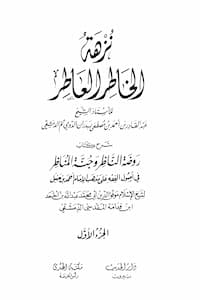 نزهة
الخاطر العاطر
للأستاذ الشيخ
عبد القادر بن أحمد بن مصطفى بدران الدومي ثم الدمشقي
شرح كتاب
روضة الناظر وجنة المناظر
في أصول الفقه على مذهب الإمام أحمد بن حنبل
لشيخ الإسلام موفق الدين أبي محمد عبد الله بن أحمد
ابن قدامة المقدسي الدمشقي
الجزء الأول
دار الحديث
بيروت
مكتبة الهدى
رأس الخيمة